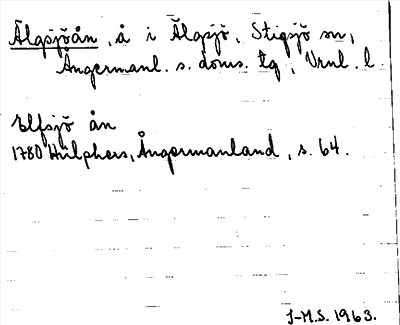 Älgsjöån, å i Älgsjö, Stigsjö sn,
Ångermanl. s. doms. tg, Vrnl. l.
Elfsjö ån
1780 Hülphers, Ångermanland, s. 64.
J-M.S. 1963.